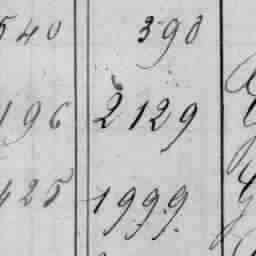 540 390
196 2129
425 1999